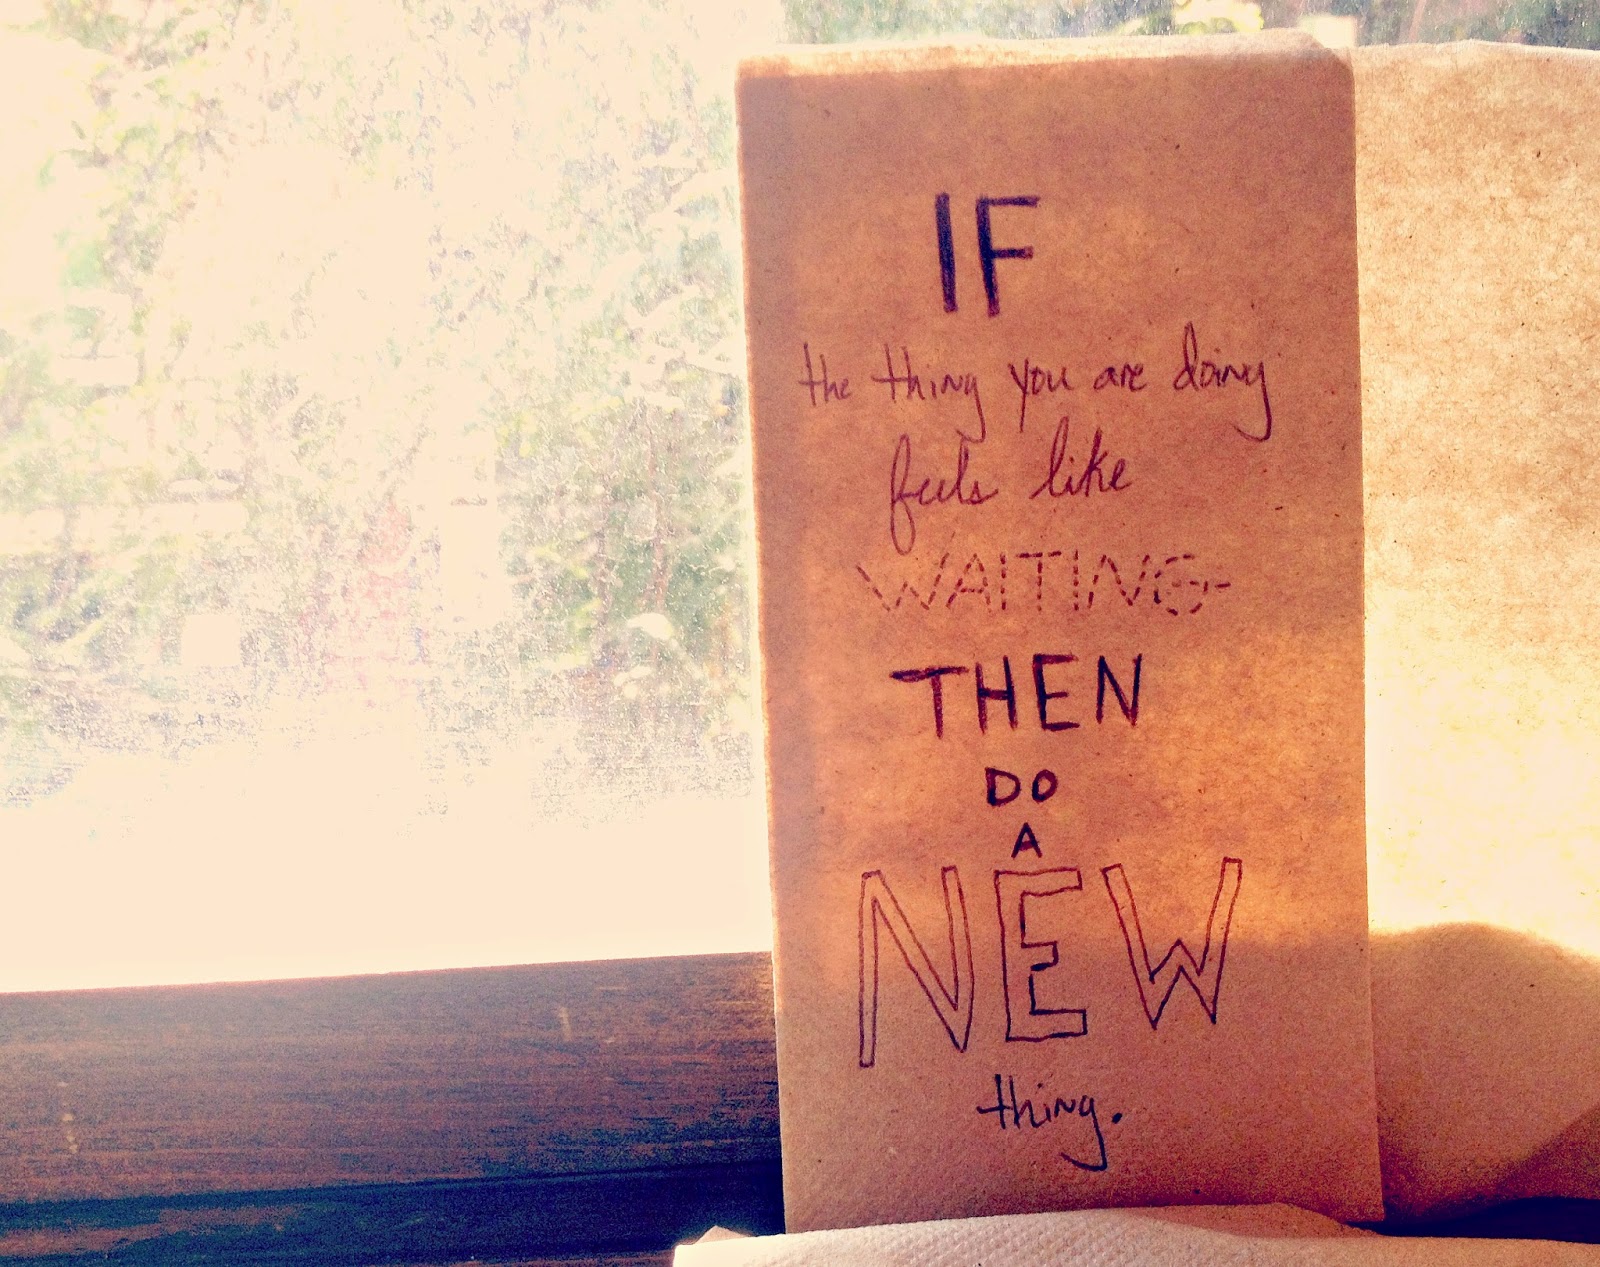 IF
the thing you are doing
feels like
WAITING
THEN
DO
A
NEW
thing.